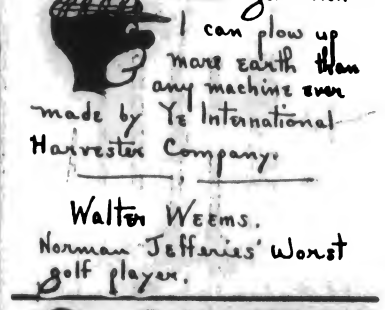 I can plow up
more earth than
any machine ever
made by Ye International
Harvester Company.
Walter Weems.
Norman Jefferies' worst
golf player.